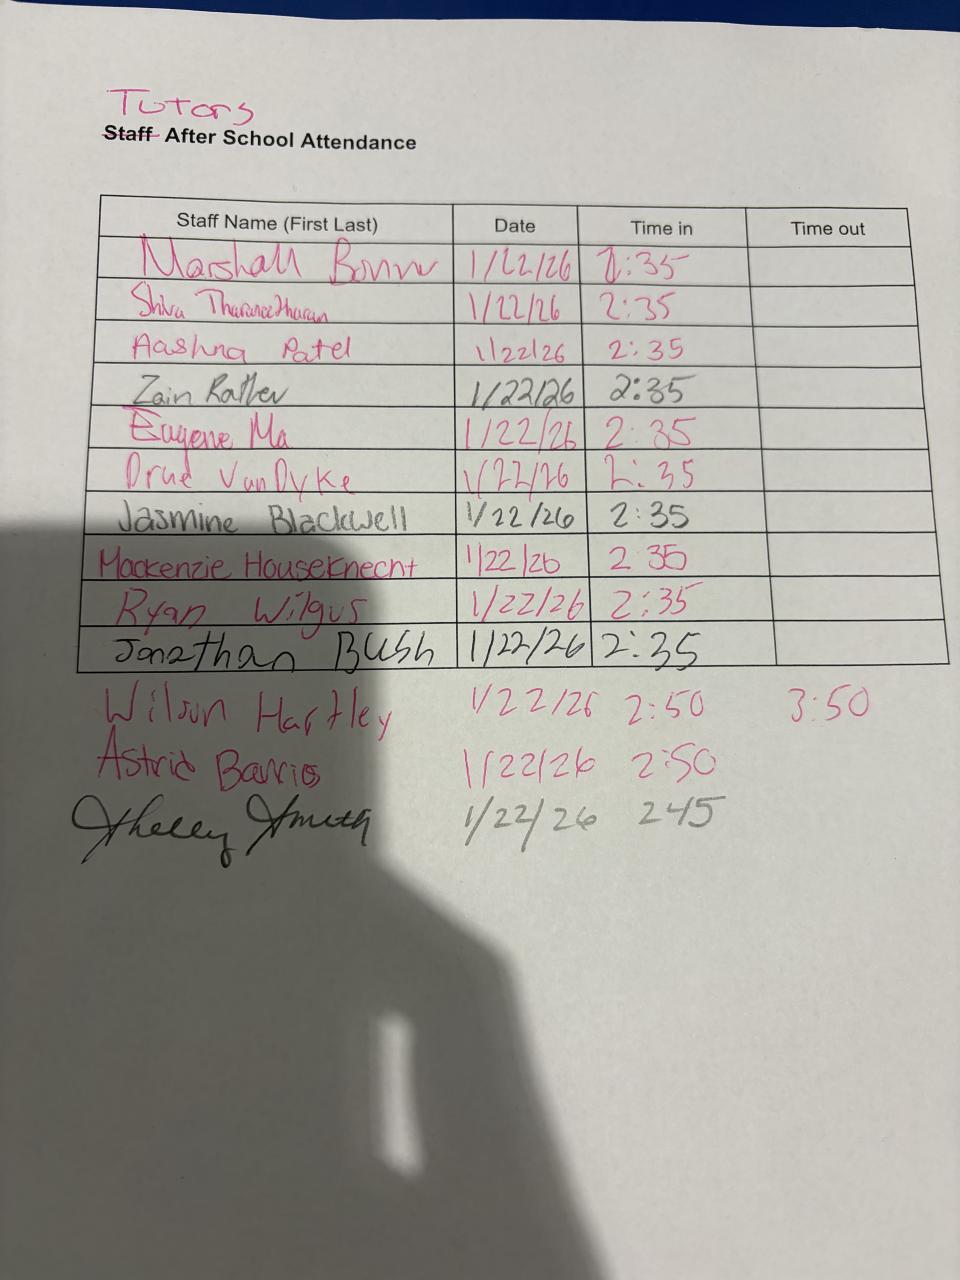 Tutors
Staff After School Attendance
Staff Name (First Last) Date Time in Time out
Marshall 1/22/26 2:35
Shiva 1/22/26 2:35
Aashna Patel 1/22/26 2:35
Zain 1/22/26 2:35
Eugene Ma 1/22/26 2:35
VanDyke 1/22/26 2:35
Jasmine Blackwell 1/22/26 2:35
Mackenzie Houseknecht 1/22/26 2 35
Ryan Wilgus 1/22/26 2:35
Jonathan Bush 1/22/26 2:35
Wilson Hartley 1/22/26 2:50 3:50
Astrid Barrios 1/22/26 2:50
Smith 1/22/26 245